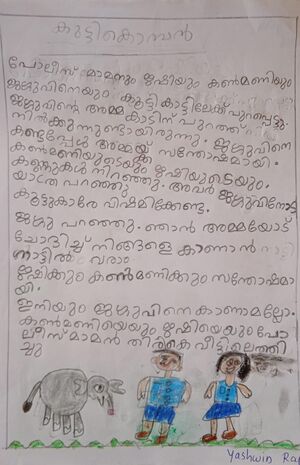 കുട്ടികൊമ്പൻ
പോലീസ് മാമനും ഋഷിയും കൺമണിയും
ജഗ്ഗുവിനെയും കൂട്ടി കാട്ടിലേക്ക് പുറപ്പെട്ടു.
ജഗ്ഗുവിന്റെ അമ്മ കാടിന് പുറത്ത്
നിൽക്കുന്നുണ്ടായിരുന്നു. ജഗ്ഗുവിനെ
കണ്ടപ്പോൾ അമ്മയ്ക്ക് സന്തോഷമായി.
കൺമണിയുടെയും ഋഷിയുടെയും
കണ്ണുകൾ നിറഞ്ഞു. അവർ ജഗ്ഗുവിനോട്
യാത്ര പറഞ്ഞു.
കൂട്ടുകാരേ വിഷമിക്കേണ്ട.
ജഗ്ഗു പറഞ്ഞു. ഞാൻ അമ്മയോട്
ചോദിച്ച് നിങ്ങളെ കാണാൻ
നാട്ടിൽ വരാം
ഋഷിക്കും കൺമണിക്കും സന്തോഷമാ
യി.
ഇനിയും ജഗ്ഗുവിനെ കാണാമല്ലോ.
കൺമണിയെയും ഋഷിയെയും പോ
ലീസ് മാമൻ തിരികെ വീട്ടിലെത്തി
ച്ചു
Yashwin Raj